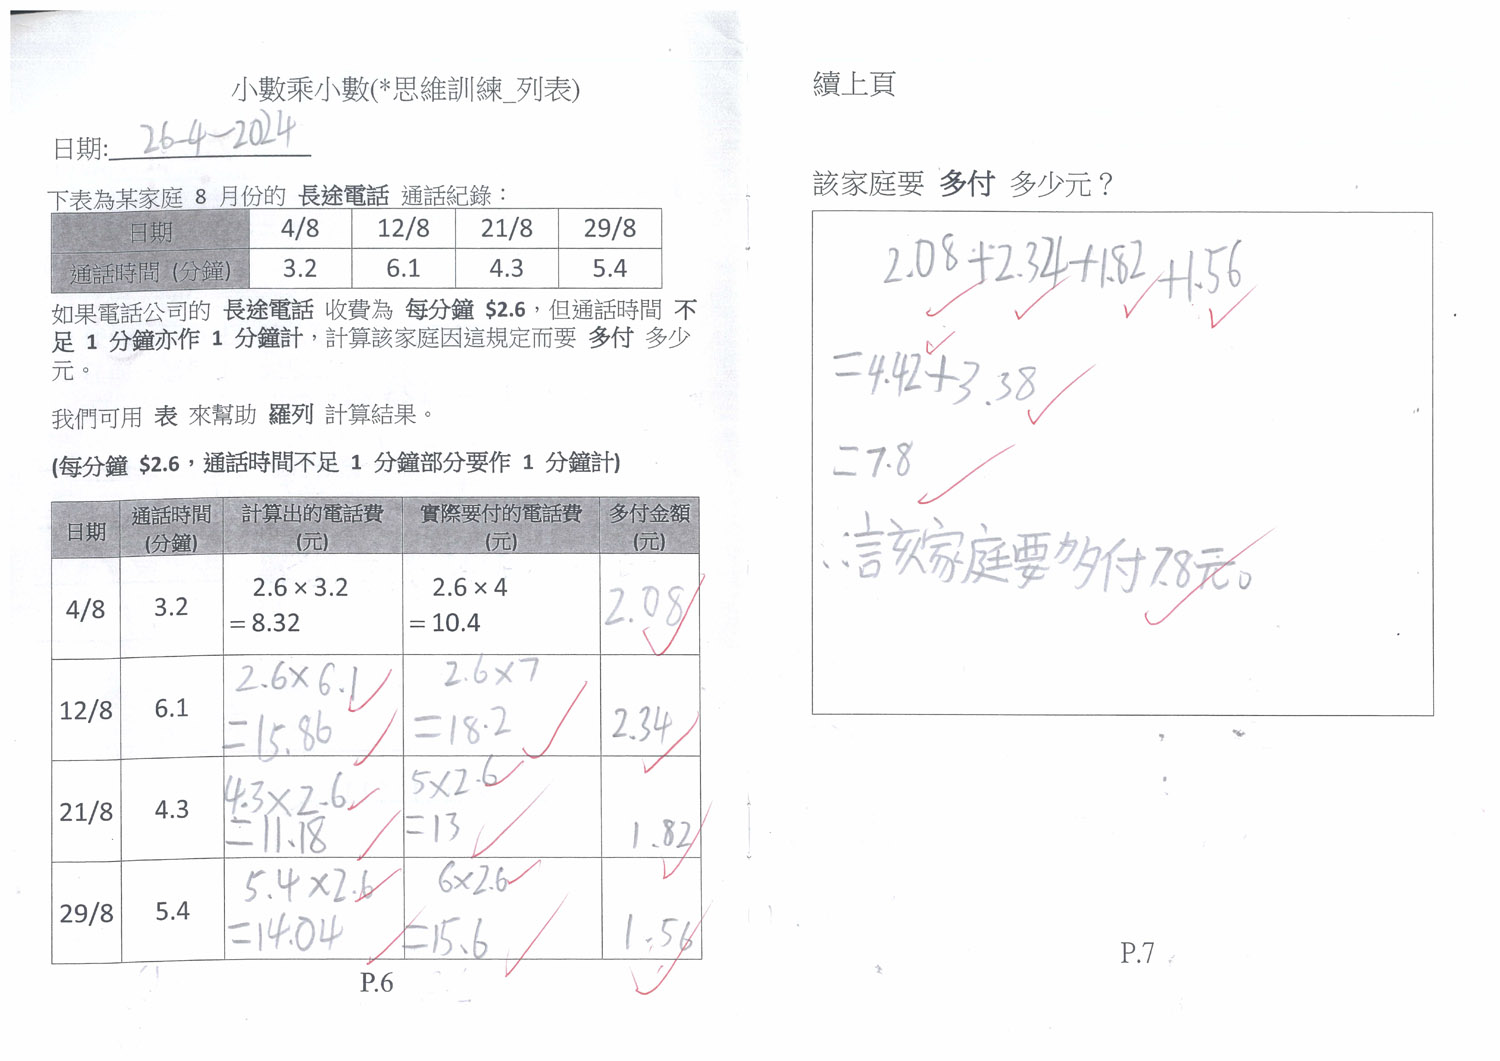 小數乘小數(*思維訓練_列表)
日期: 26-4-2024
下表為某家庭 8 月份的 長途電話 通話紀錄：
日期 4/8 12/8 21/8 29/8
通話時間 (分鐘) 3.2 6.1 4.3 5.4
如果電話公司的 長途電話 收費為 每分鐘 $2.6，但通話時間 不
足 1 分鐘亦作 1 分鐘計，計算該家庭因這規定而要 多付 多少
元。
我們可用 表 來幫助 羅列 計算結果。
(每分鐘 $2.6，通話時間不足 1 分鐘部分要作 1 分鐘計)
日期 通話時間 (分鐘) 計算出的電話費 (元) 實際要付的電話費 (元) 多付金額 (元)
4/8 3.2 2.6 × 3.2 2.6 × 4 2.08
= 8.32 = 10.4
12/8 6.1 2.6×6.1 2.6×7 2.34
=15.86 =18.2
21/8 4.3 4.3×2.6 5×2.6 1.82
=11.18 =13
29/8 5.4 5.4×2.6 6×2.6 1.56
=14.04 =15.6
P.6
續上頁
該家庭要 多付 多少元？
2.08+2.34+1.82+1.56
=4.42+3.38
=7.8
∴該家庭要多付7.8元。
P.7